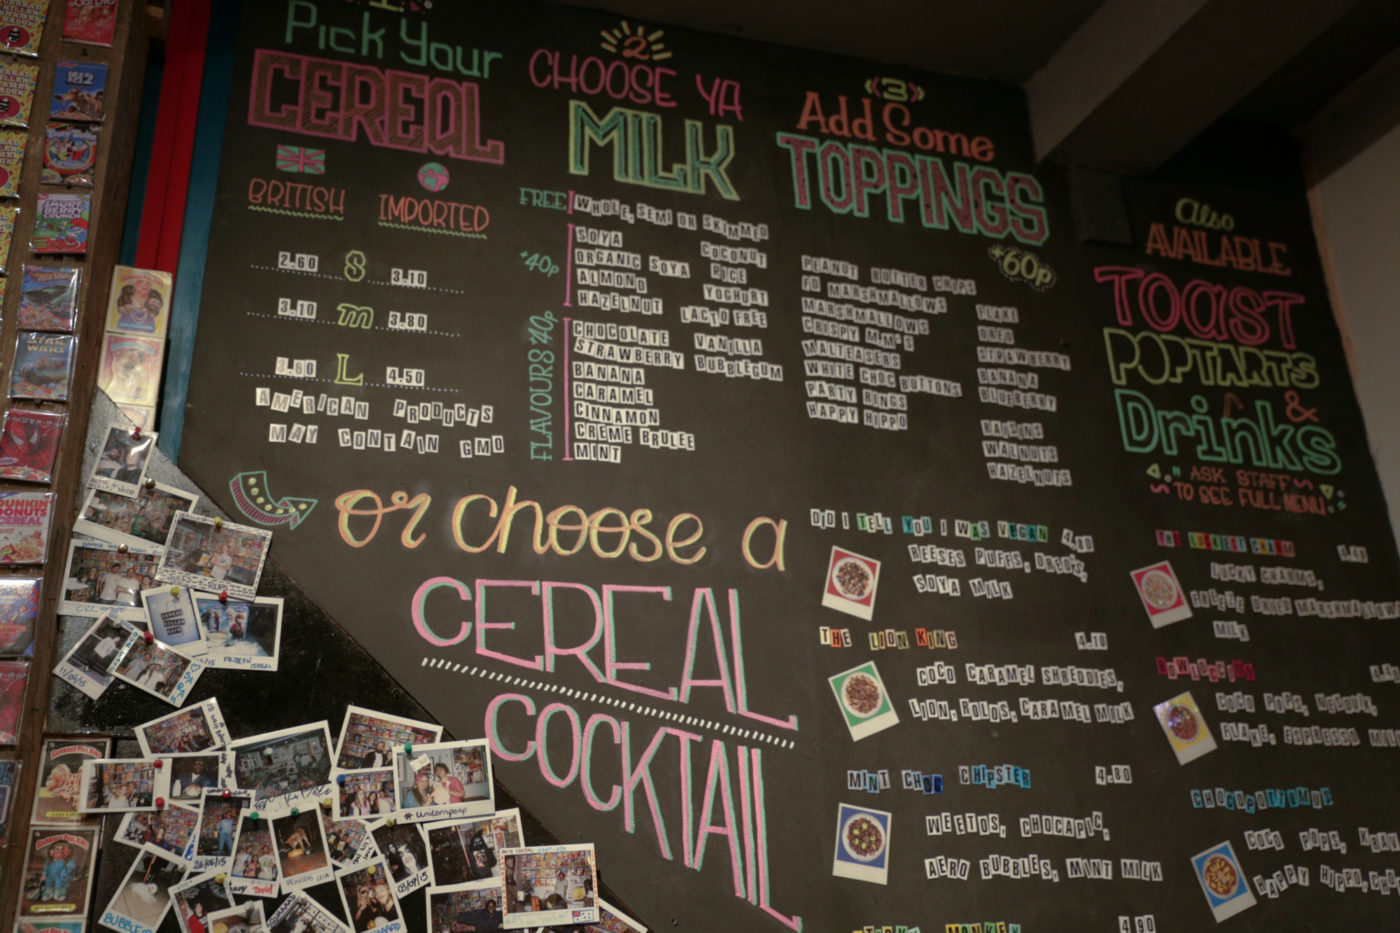 Pick Your
CEREAL
BRITISH
IMPORTED
2.60 S 3.10
3.10 m 3.80
3.60 L 4.50
AMERICAN PRODUCTS
MAY CONTAIN GMO
2
CHOOSE YA
MILK
FREE
WHOLE, SEMI OR SKIMMED
+40p
SOYA
ORGANIC SOYA
ALMOND
HAZELNUT
COCONUT
RICE
YOGHURT
LACTO FREE
FLAVOURS 40p
CHOCOLATE
STRAWBERRY
BANANA
CARAMEL
CINNAMON
CREME BRULEE
MINT
VANILLA
BUBBLEGUM
3
Add Some
TOPPINGS
+60p
PEANUT BUTTER CHIPS
FD MARSHMALLOWS
MARSHMALLOWS
CRISPY M&M'S
MALTEASERS
WHITE CHOC BUTTONS
PARTY RINGS
HAPPY HIPPO
FLAKE
OREO
STRAWBERRY
BANANA
BLUEBERRY
RAISINS
WALNUTS
HAZELNUTS
Also
AVAILABLE
TOAST
POPTARTS
&
Drinks
ASK STAFF
TO SEE FULL MENU
or choose a
CEREAL
COCKTAIL
DID I TELL YOU I WAS VEGAN 4.80
REESES PUFFS, OREOS,
SOYA MILK
THE LION KING 4.70
COCO CARAMEL SHREDDIES,
LION, ROLOS, CARAMEL MILK
MINT CHOC CHIPSTER 4.80
WEETOS, CHOCAPIC,
AERO BUBBLES, MINT MILK
MONKEY 4.90
THE LUCKIEST CHARM
LUCKY CHARMS,
FREEZE DRIED MARSHMALLOWS
MILK
COCO POPS, NESQUIK,
FLAKE, ESPRESSO MILK
CHOCOPOTTOMUS
COCO POPS,
HAPPY HIPPO,
STAR WARS
DUNKIN
DONUTS
CEREAL
SMURF
BERRY
CRUNCH
ICE AGE 2
Barbie
FROZEN CEREAL
11/04/15
# unilampoop
26/05/15
PRINCESS LEIA
03/07/15
BUBBLE